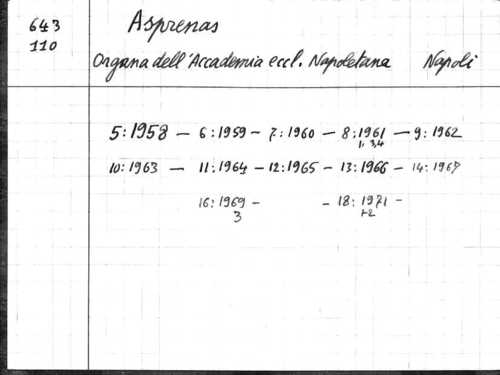 643 Asprenas
110
Organa dell'Accademia eccl. Napoletana Napoli
5:1958 — 6:1959 — 7:1960 — 8:1961 — 9:1962
1, 3,4
10:1963 — 11:1964 — 12:1965 — 13:1966 — 14:1967
16:1969 — — 18:1971 —
3 1-2